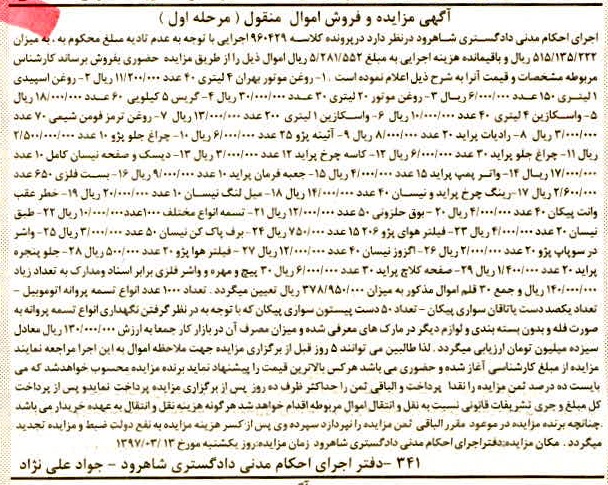 آگهی مزایده و فروش اموال منقول ( مرحله اول )
اجرای احکام مدنی دادگستری شاهرود درنظر دارد درپرونده کلاسه ۹۶۰۴۲۹ اجرایی با توجه به عدم تادیه مبلغ محکوم به ، به میزان
۵۱۵/۱۳۵/۲۲۲ ریال و باقیمانده هزینه اجرایی به مبلغ ۵/۲۸۱/۵۵۲ ریال اموال ذیل را از طریق مزایده حضوری بفروش برساند کارشناس
مربوطه مشخصات و قیمت آنرا به شرح ذیل اعلام نموده است . ۱- روغن موتور بهران ۴ لیتری ۴۰ عدد ۱۱/۲۰۰/۰۰۰ ریال ۲- روغن اسپیدی
۱ لیتری ۱۵۰ عدد ۶/۰۰۰/۰۰۰ ریال ۳- روغن موتور ۲۰ لیتری ۳۰ عدد ۳۰/۰۰۰/۰۰۰ ریال ۴- گریس ۵ کیلویی ۶۰ عدد ۱۸/۰۰۰/۰۰۰ ریال
۵- واسکازین ۴ لیتری ۴۰ عدد ۱۰/۰۰۰/۰۰۰ ریال ۶- واسکازین ۱ لیتری ۲۰۰ عدد ۱۳/۰۰۰/۰۰۰ ریال ۷- روغن ترمز فومن شیمی ۷۰ عدد
۳/۰۰۰/۰۰۰ ریال ۸- رادیات پراید ۲۰ عدد ۸/۰۰۰/۰۰۰ ریال ۹- آئینه پژو ۲۵ عدد ۶/۰۰۰/۰۰۰ ریال ۱۰- چراغ جلو پژو ۱۰ عدد ۲/۵۰۰/۰۰۰
ریال ۱۱- چراغ جلو پراید ۳۰ عدد ۶/۰۰۰/۰۰۰ ریال ۱۲- کاسه چرخ پراید ۱۲ عدد ۳/۰۰۰/۰۰۰ ریال ۱۳- دیسک و صفحه نیسان کامل ۱۰ عدد
۱۷/۰۰۰/۰۰۰ ریال ۱۴- واتر پمپ پراید ۱۵ عدد ۴/۰۰۰/۰۰۰ ریال ۱۵- جعبه فرمان پراید ۱۰ عدد ۹/۰۰۰/۰۰۰ ریال ۱۶- بست فلزی ۶۵۰ عدد
۲/۶۰۰/۰۰۰ ریال ۱۷- رینگ چرخ پراید و نیسان ۴۰ عدد ۱۴/۰۰۰/۰۰۰ ریال ۱۸- میل لنگ نیسان ۱۰ عدد ۲۰/۰۰۰/۰۰۰ ریال ۱۹- خطر عقب
وانت پیکان ۴۰ عدد ۴/۰۰۰/۰۰۰ ریال ۲۰- بوق حلزونی ۵۰ عدد ۱۲/۰۰۰/۰۰۰ ریال ۲۱- تسمه انواع مختلف ۱۰۰۰عدد ۱۰/۰۰۰/۰۰۰ ریال ۲۲- طبق
نیسان ۲۰ عدد ۴/۰۰۰/۰۰۰ ریال ۲۳- فیلتر هوای پژو ۲۰۶ ۱۵ عدد ۷۵۰/۰۰۰ ریال ۲۴- برف پاک کن نیسان ۵۰ عدد ۳/۰۰۰/۰۰۰ ریال ۲۵- واشر
در سوپاپ پژو ۲۰ عدد ۲/۰۰۰/۰۰۰ ریال ۲۶- اگزوز نیسان ۴۰ عدد ۱۲/۰۰۰/۰۰۰ ریال ۲۷- فیلتر هوا پژو ۲۰ عدد ۵۰۰/۰۰۰ ریال ۲۸- جلو پنجره
پراید ۲۰ عدد ۱/۴۰۰/۰۰۰ ریال ۲۹- صفحه کلاچ پراید ۳۰ عدد ۶/۰۰۰/۰۰۰ ریال ۳۰ پیچ و مهره و واشر فلزی برابر اسناد ومدارک به تعداد زیاد
۱۴۰/۰۰۰/۰۰۰ ریال و جمع ۳۰ قلم اموال مذکور به میزان ۳۷۸/۹۵۰/۰۰۰ ریال تعیین میگردد . تعداد ۱۰۰۰ عدد انواع تسمه پروانه اتوموبیل -
تعداد یکصد دست یاتاقان سواری پیکان - تعداد ۵۰ دست پیستون سواری پیکان که با توجه به در نظر گرفتن نگهداری انواع تسمه پروانه به
صورت فله و بدون بسته بندی و لوازم دیگر در مارک های معرفی شده و میزان مصرف آن در بازار کار جمعا به ارزش ۱۳۰/۰۰۰/۰۰۰ ریال معادل
سیزده میلیون تومان ارزیابی میگردد . لذا طالبین می توانند ۵ روز قبل از برگزاری مزایده جهت ملاحظه اموال به این اجرا مراجعه نمایند
مزایده از مبلغ کارشناسی آغاز شده و حضوری می باشد هرکس بالاترین قیمت را پیشنهاد نماید برنده مزایده محسوب خواهدشد که می
بایست ده درصد ثمن مزایده را نقدا پرداخت و الباقی ثمن را حداکثر ظرف ده روز پس از برگزاری مزایده پرداخت نمایدو پس از پرداخت
کل مبلغ و جری تشریفات قانونی نسبت به نقل و انتقال اموال مربوطه اقدام خواهد شد هر گونه هزینه نقل و انتقال به عهده خریدار می باشد
.چنانچه برنده مزایده در موعود مقرر الباقی ثمن مزایده را نپردازد سپرده وی پس از کسر هزینه مزایده به نفع دولت ضبط و مزایده تجدید
میگردد . مکان مزایده:دفتراجرای احکام مدنی دادگستری شاهرود زمان مزایده:روز یکشنبه مورخ ۱۳۹۷/۰۳/۱۳
۳۴۱ -دفتر اجرای احکام مدنی دادگستری شاهرود - جواد علی نژاد